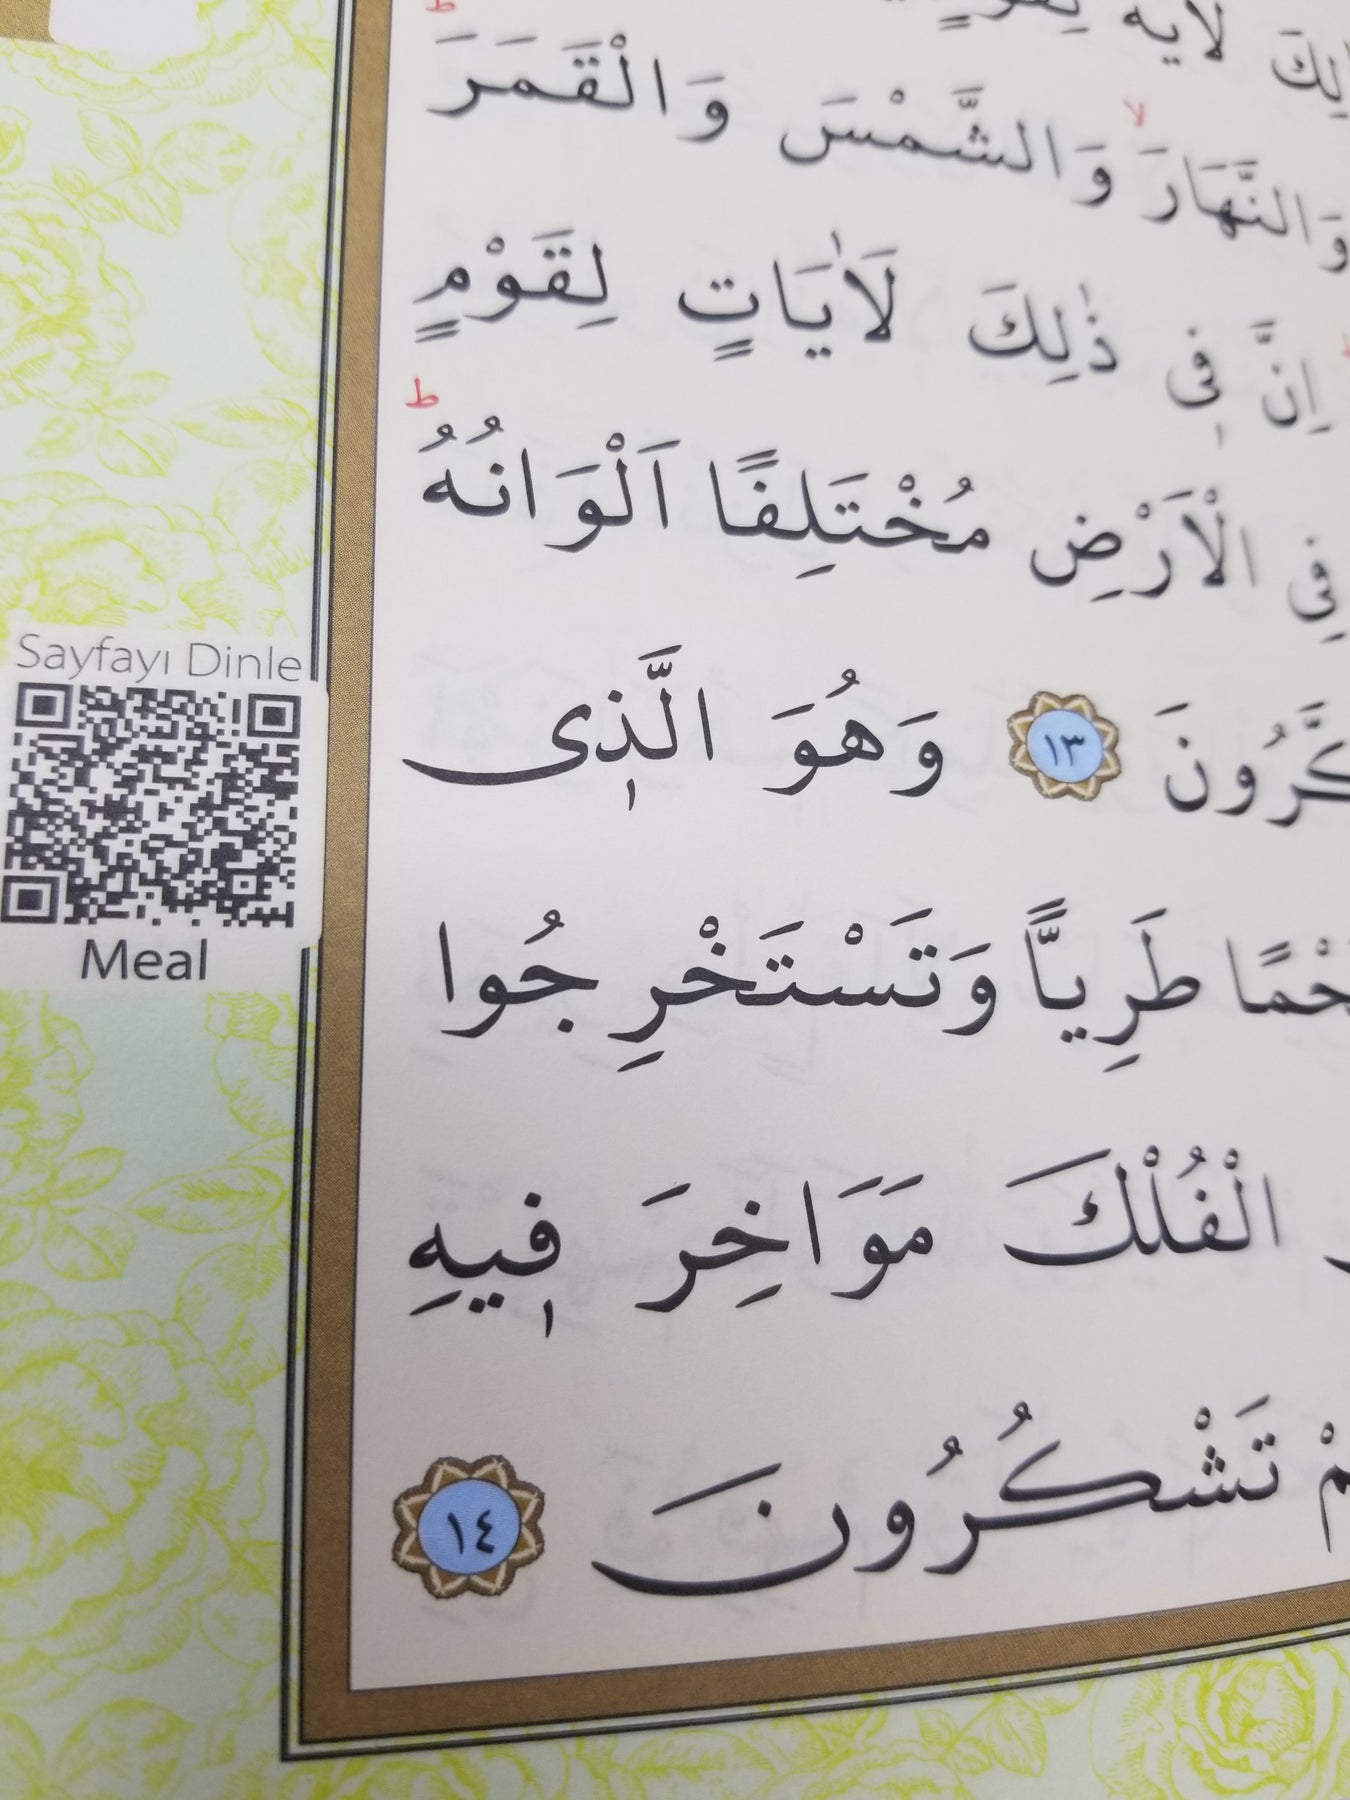 لَاٰيَةً لِقَوْمٍ
وَالنَّهَارَۙ وَالشَّمْسَ وَالْقَمَرَۜ
اِنَّ فِى ذٰلِكَ لَاٰيَاتٍ لِقَوْمٍ
فِى الْاَرْضِ مُخْتَلِفًا اَلْوَانُهُۜ
كَّرُونَ ١٣ وَهُوَ الَّذٖى
حْمًا طَرِيًّا وَتَسْتَخْرِجُوا
الْفُلْكَ مَوَاخِرَ فٖيهِ
مْ تَشْكُرُونَ ١٤
Sayfayı Dinle
Meal